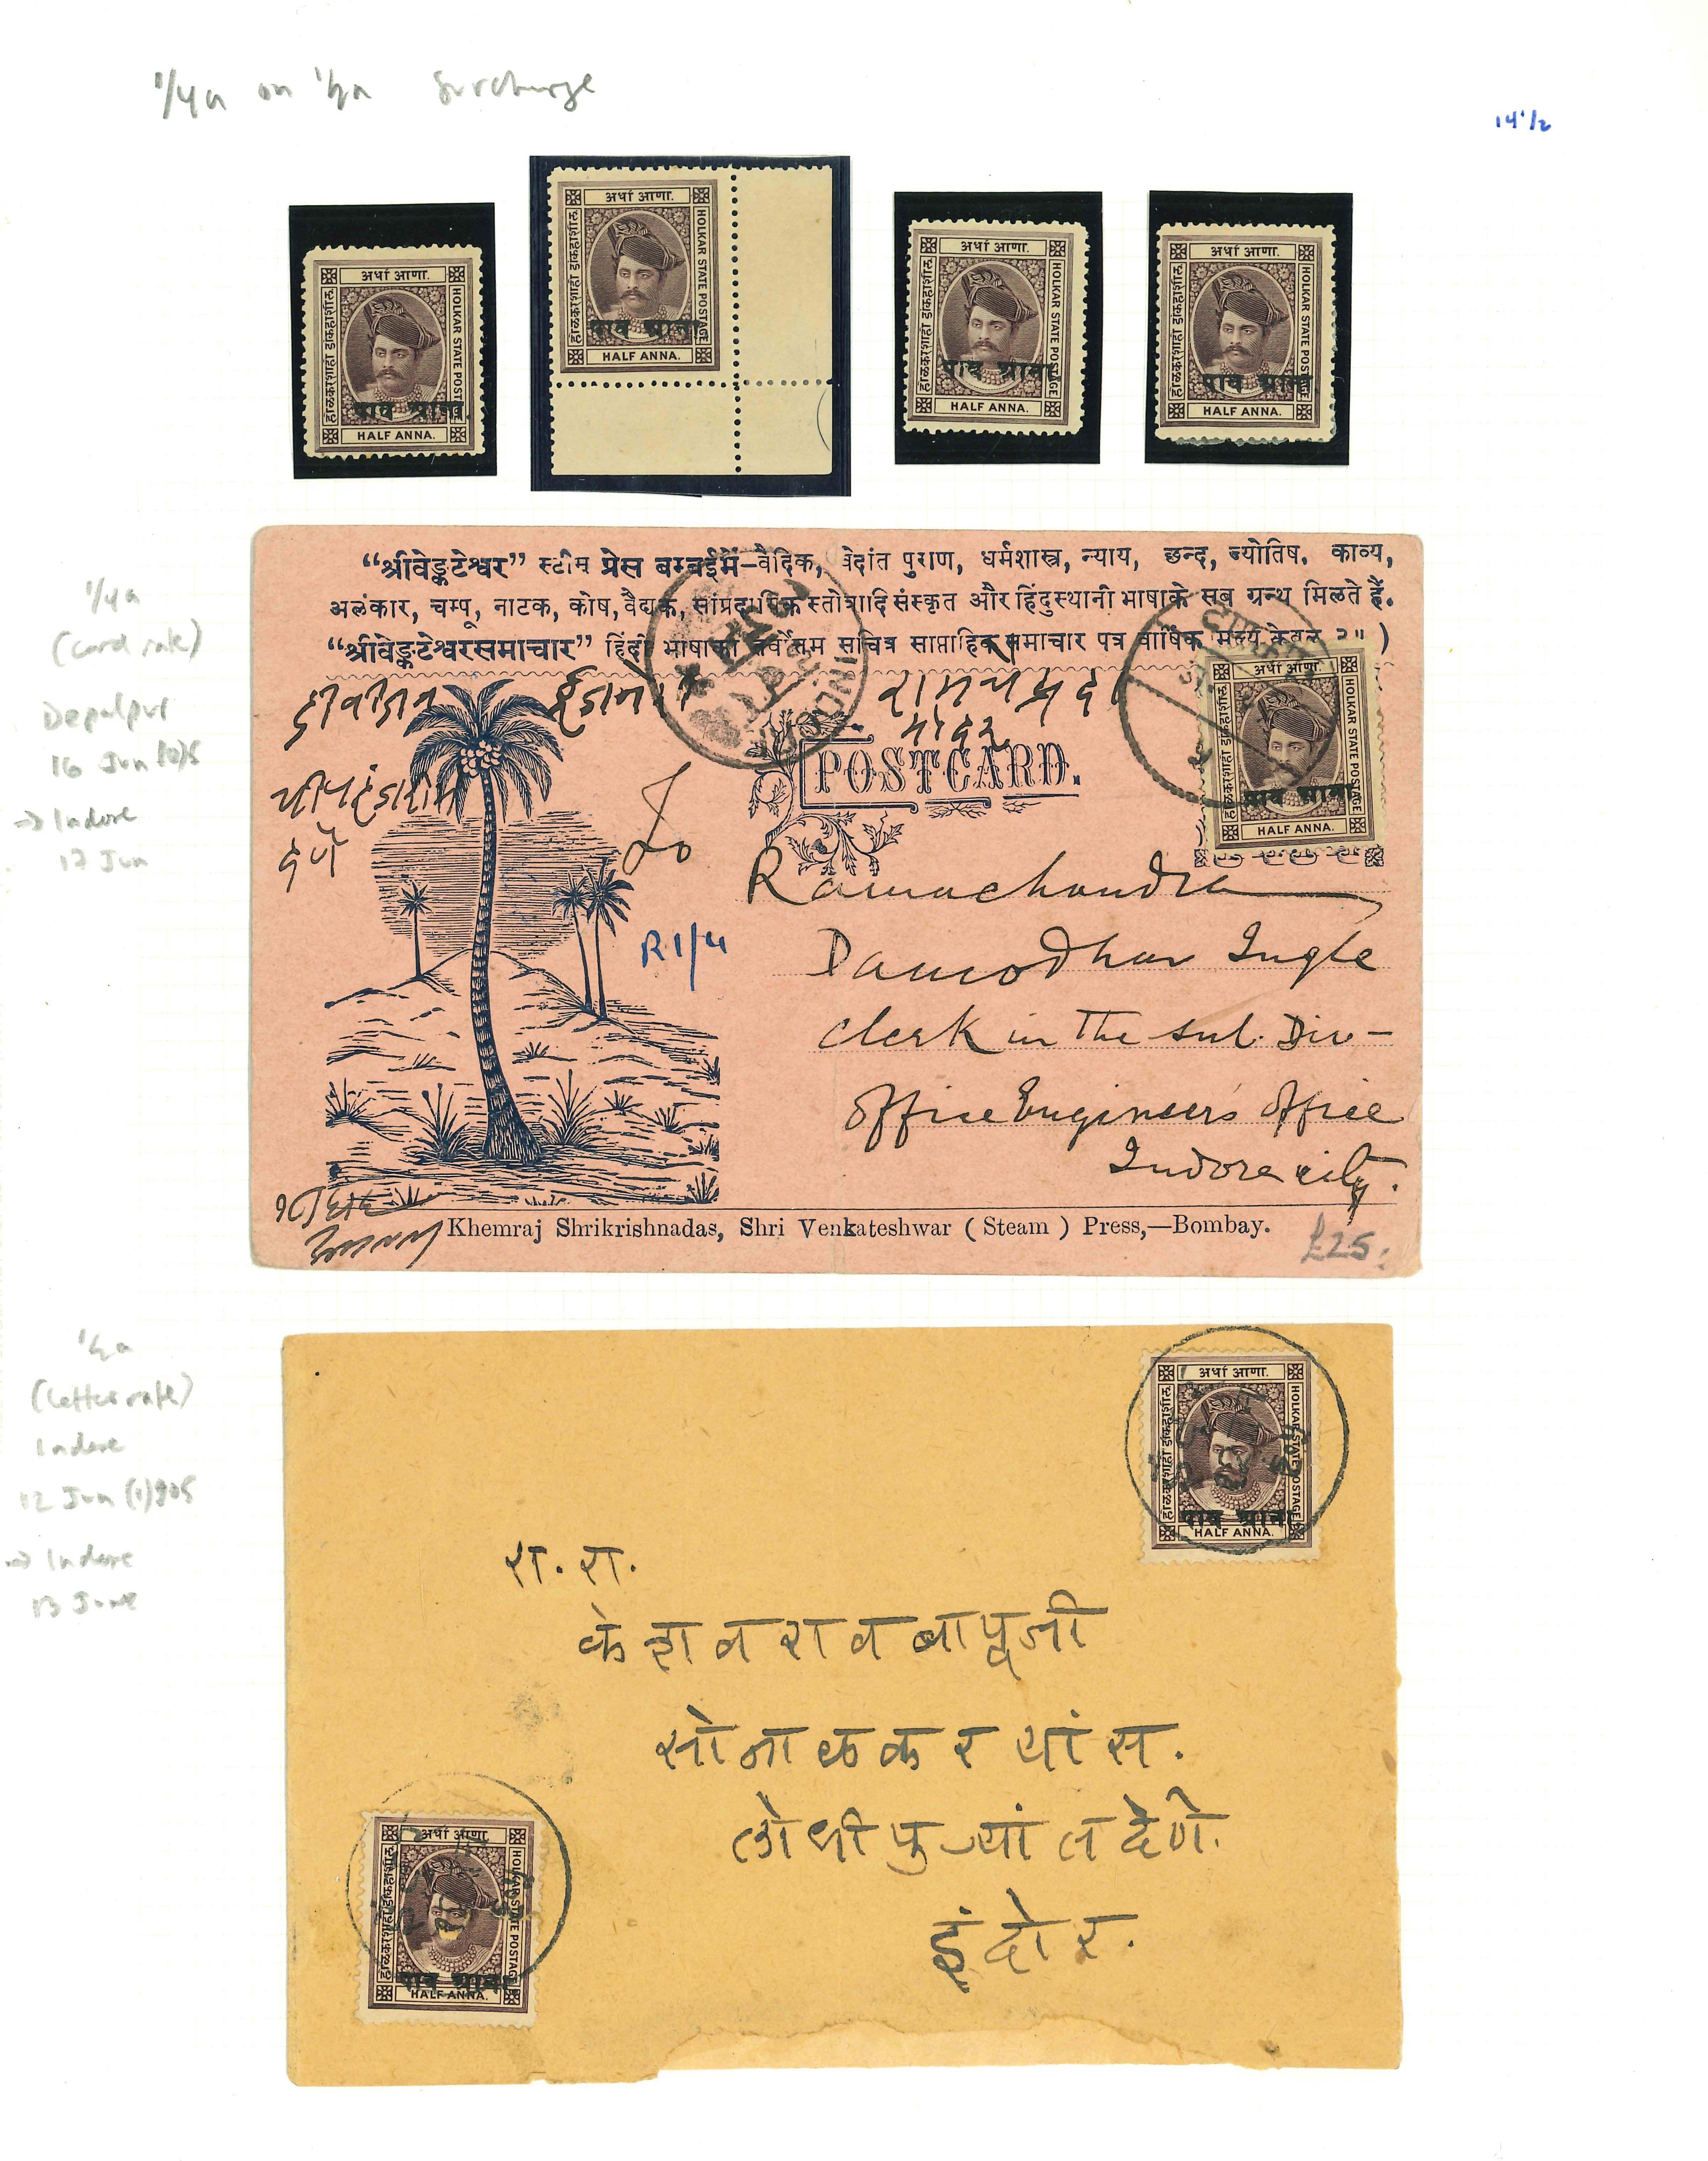 1/4a on 1/2a Surcharge
14 1/2
अर्धा आणा.
होळकरशाही डांकहाशील.
HOLKAR STATE POSTAGE
पाव आना.
HALF ANNA.
अर्धा आणा.
होळकरशाही डांकहाशील.
HOLKAR STATE POSTAGE
पाव आना
HALF ANNA.
अर्धा आणा.
होळकरशाही डांकहाशील.
HOLKAR STATE POSTAGE
पाव आना
HALF ANNA.
अर्धा आणा.
होळकरशाही डांकहाशील.
HOLKAR STATE POSTAGE
पाव आना
HALF ANNA.
1/4a
(card rate)
Depalpur
16 Jun (0)5
→ Indore
17 Jun
“श्रीवेङ्कटेश्वर” स्टीम् प्रेस बम्बईमें–वैदिक, वेदांत पुराण, धर्मशास्त्र, न्याय, छन्द, ज्योतिष, काव्य,
अलंकार, चम्पू, नाटक, कोष, वैद्यक, सांप्रदायिक स्तोत्रादि संस्कृत और हिंदुस्थानी भाषाके सब ग्रन्थ मिलते हैं.
“श्रीवेङ्कटेश्वरसमाचार” हिंदी भाषाका सर्वोत्तम सचित्र साप्ताहिक समाचार पत्र वार्षिक मूल्य केवल २॥)
INDORE
POSTCARD.
अर्धा आणा.
होळकरशाही डांकहाशील.
HOLKAR STATE POSTAGE
पाव आना
HALF ANNA.
To
Ramachandra
Damodhar Ingle
R 1/4
Clerk in the sub. Div-
Office Engineer's office
Indore city.
Khemraj Shrikrishnadas, Shri Venkateshwar (Steam) Press,—Bombay.
£25.
1/2a
(letter rate)
Indore
12 Jun (1)905
→ Indore
13 June
अर्धा आणा.
होळकरशाही डांकहाशील.
HOLKAR STATE POSTAGE
पाव आना
HALF ANNA.
रा. रा.
केशवराव बापूजी
सोनाळकर यांस.
लोधीपुऱ्यांत देणे.
इंदोर.
अर्धा आणा.
होळकरशाही डांकहाशील.
HOLKAR STATE POSTAGE
पाव आना.
HALF ANNA.